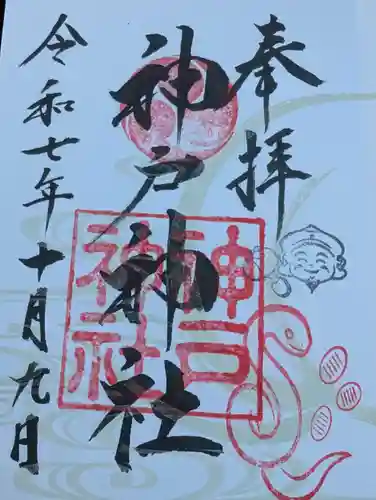 奉拝
神戸神社
神戸神社
令和七年十月九日